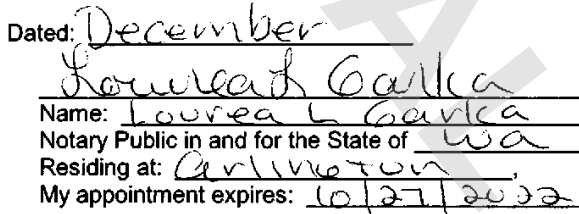 Dated: December
Lourea L Garka
Name: Lourea L Garka
Notary Public in and for the State of WA
Residing at: Arlington,
My appointment expires: 10/27/2022